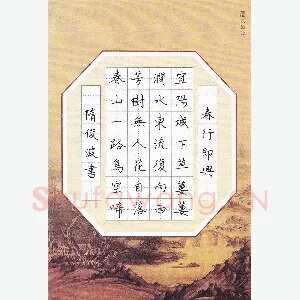 春行即興
宜陽城下草萋萋
澗水東流復向西
芳樹無人花自落
春山一路鳥空啼
隋俊波書